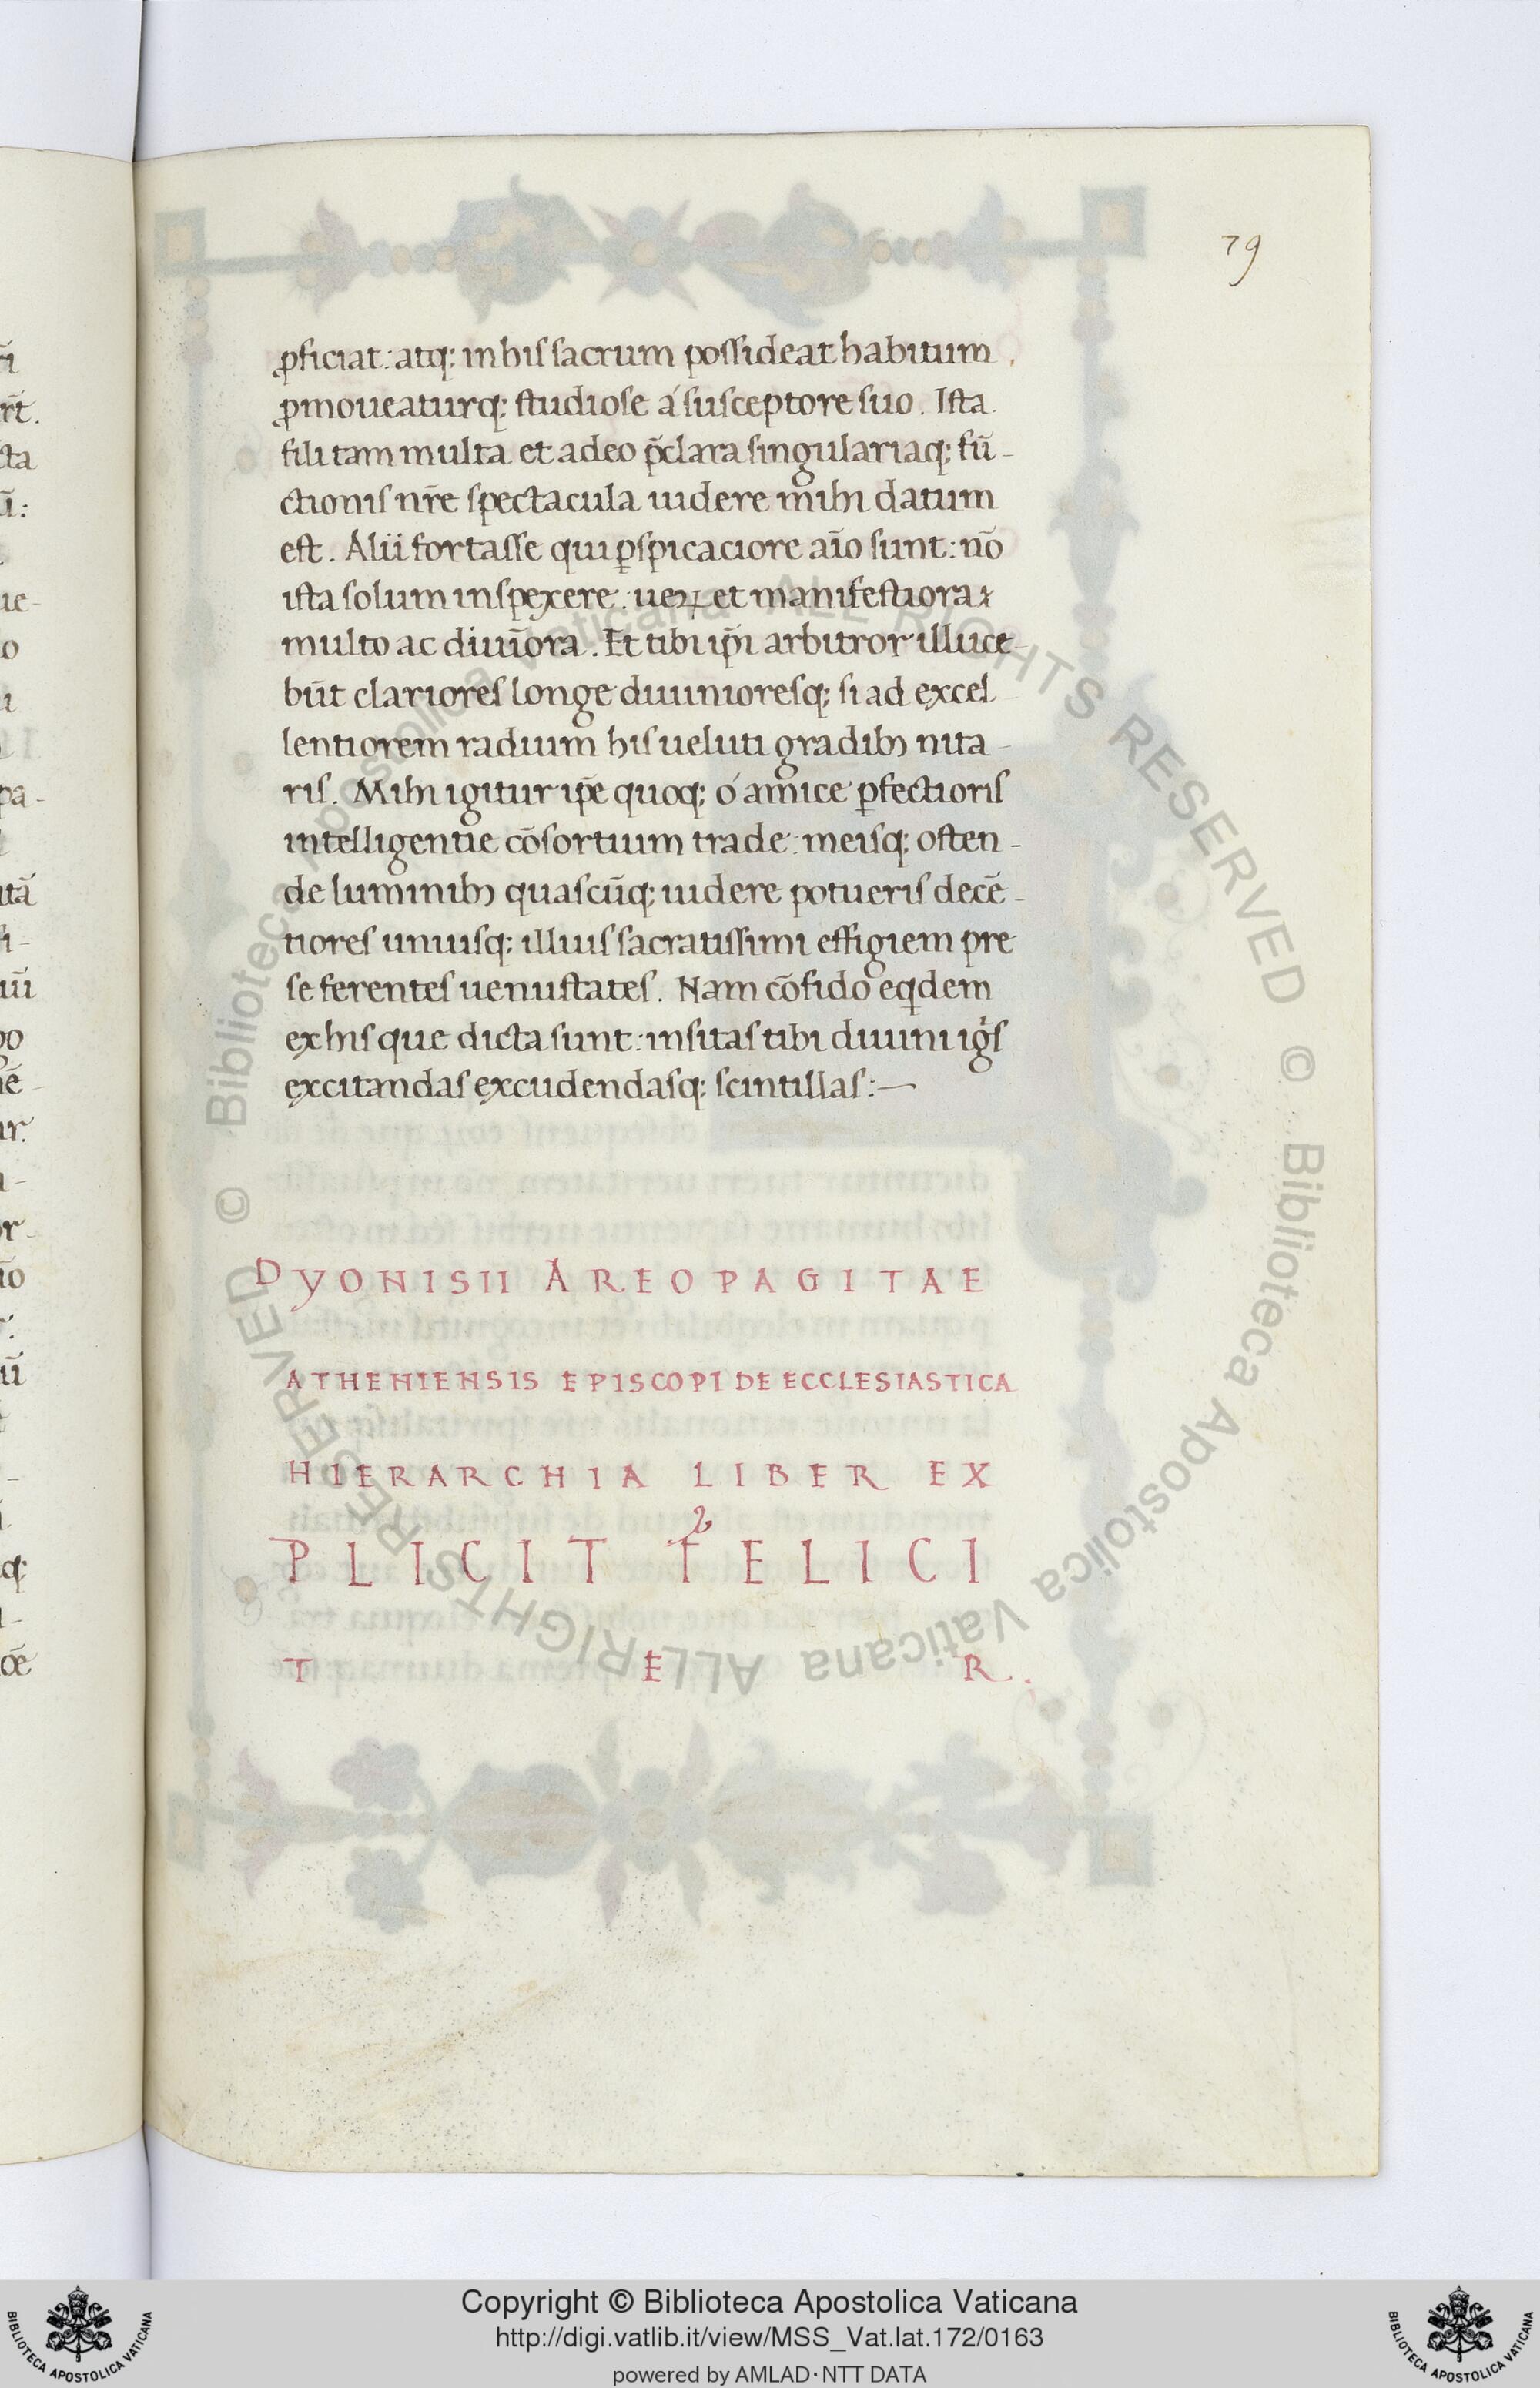 79
ꝓficiat: atq; in his sacrum possideat habitum,
ꝓmoueaturq; studiose á susceptore suo. Ista
fili tam multa et adeo p̄clara singulariaq; fū-
ctionis nr̄e spectacula uidere mihi datum
est. Alii fortasse qui ꝑspicaciore aīo sunt: nō
ista solum inspexere: ueꝝ et manifestiora
multo ac diuīora. Et tibi ip̄i arbitror illuce
būt clariores longe diuinioresq; si ad excel
lentiorem radium his ueluti gradibꝫ nita-
ris. Mihi igitur ip̄e quoq; ó amice ꝑfectioris
intelligentie cōsortium trade: meisq; osten-
de luminibꝫ quascūq; uidere potueris decē-
tiores uniusq; illius sacratissimi effigiem pre
se ferentes uenustates. Nam cōfido eqͥdem
ex his que dicta sunt: insitas tibi diuini igͥs
excitandas excudendasq; scintillas:—
DYONISII AREOPAGITAE
ATHENIENSIS EPISCOPI DE ECCLESIASTICA
HIERARCHIA LIBER EX
PLICIT FELICI
T E R.
Copyright © Biblioteca Apostolica Vaticana
http://digi.vatlib.it/view/MSS_Vat.lat.172/0163
powered by AMLAD·NTT DATA
BIBLIOTECA APOSTOLICA VATICANA
BIBLIOTECA APOSTOLICA VATICANA
© Biblioteca Apostolica Vaticana ALL RIGHTS RESERVED © Biblioteca Apostolica Vaticana ALL RIGHTS RESERVED